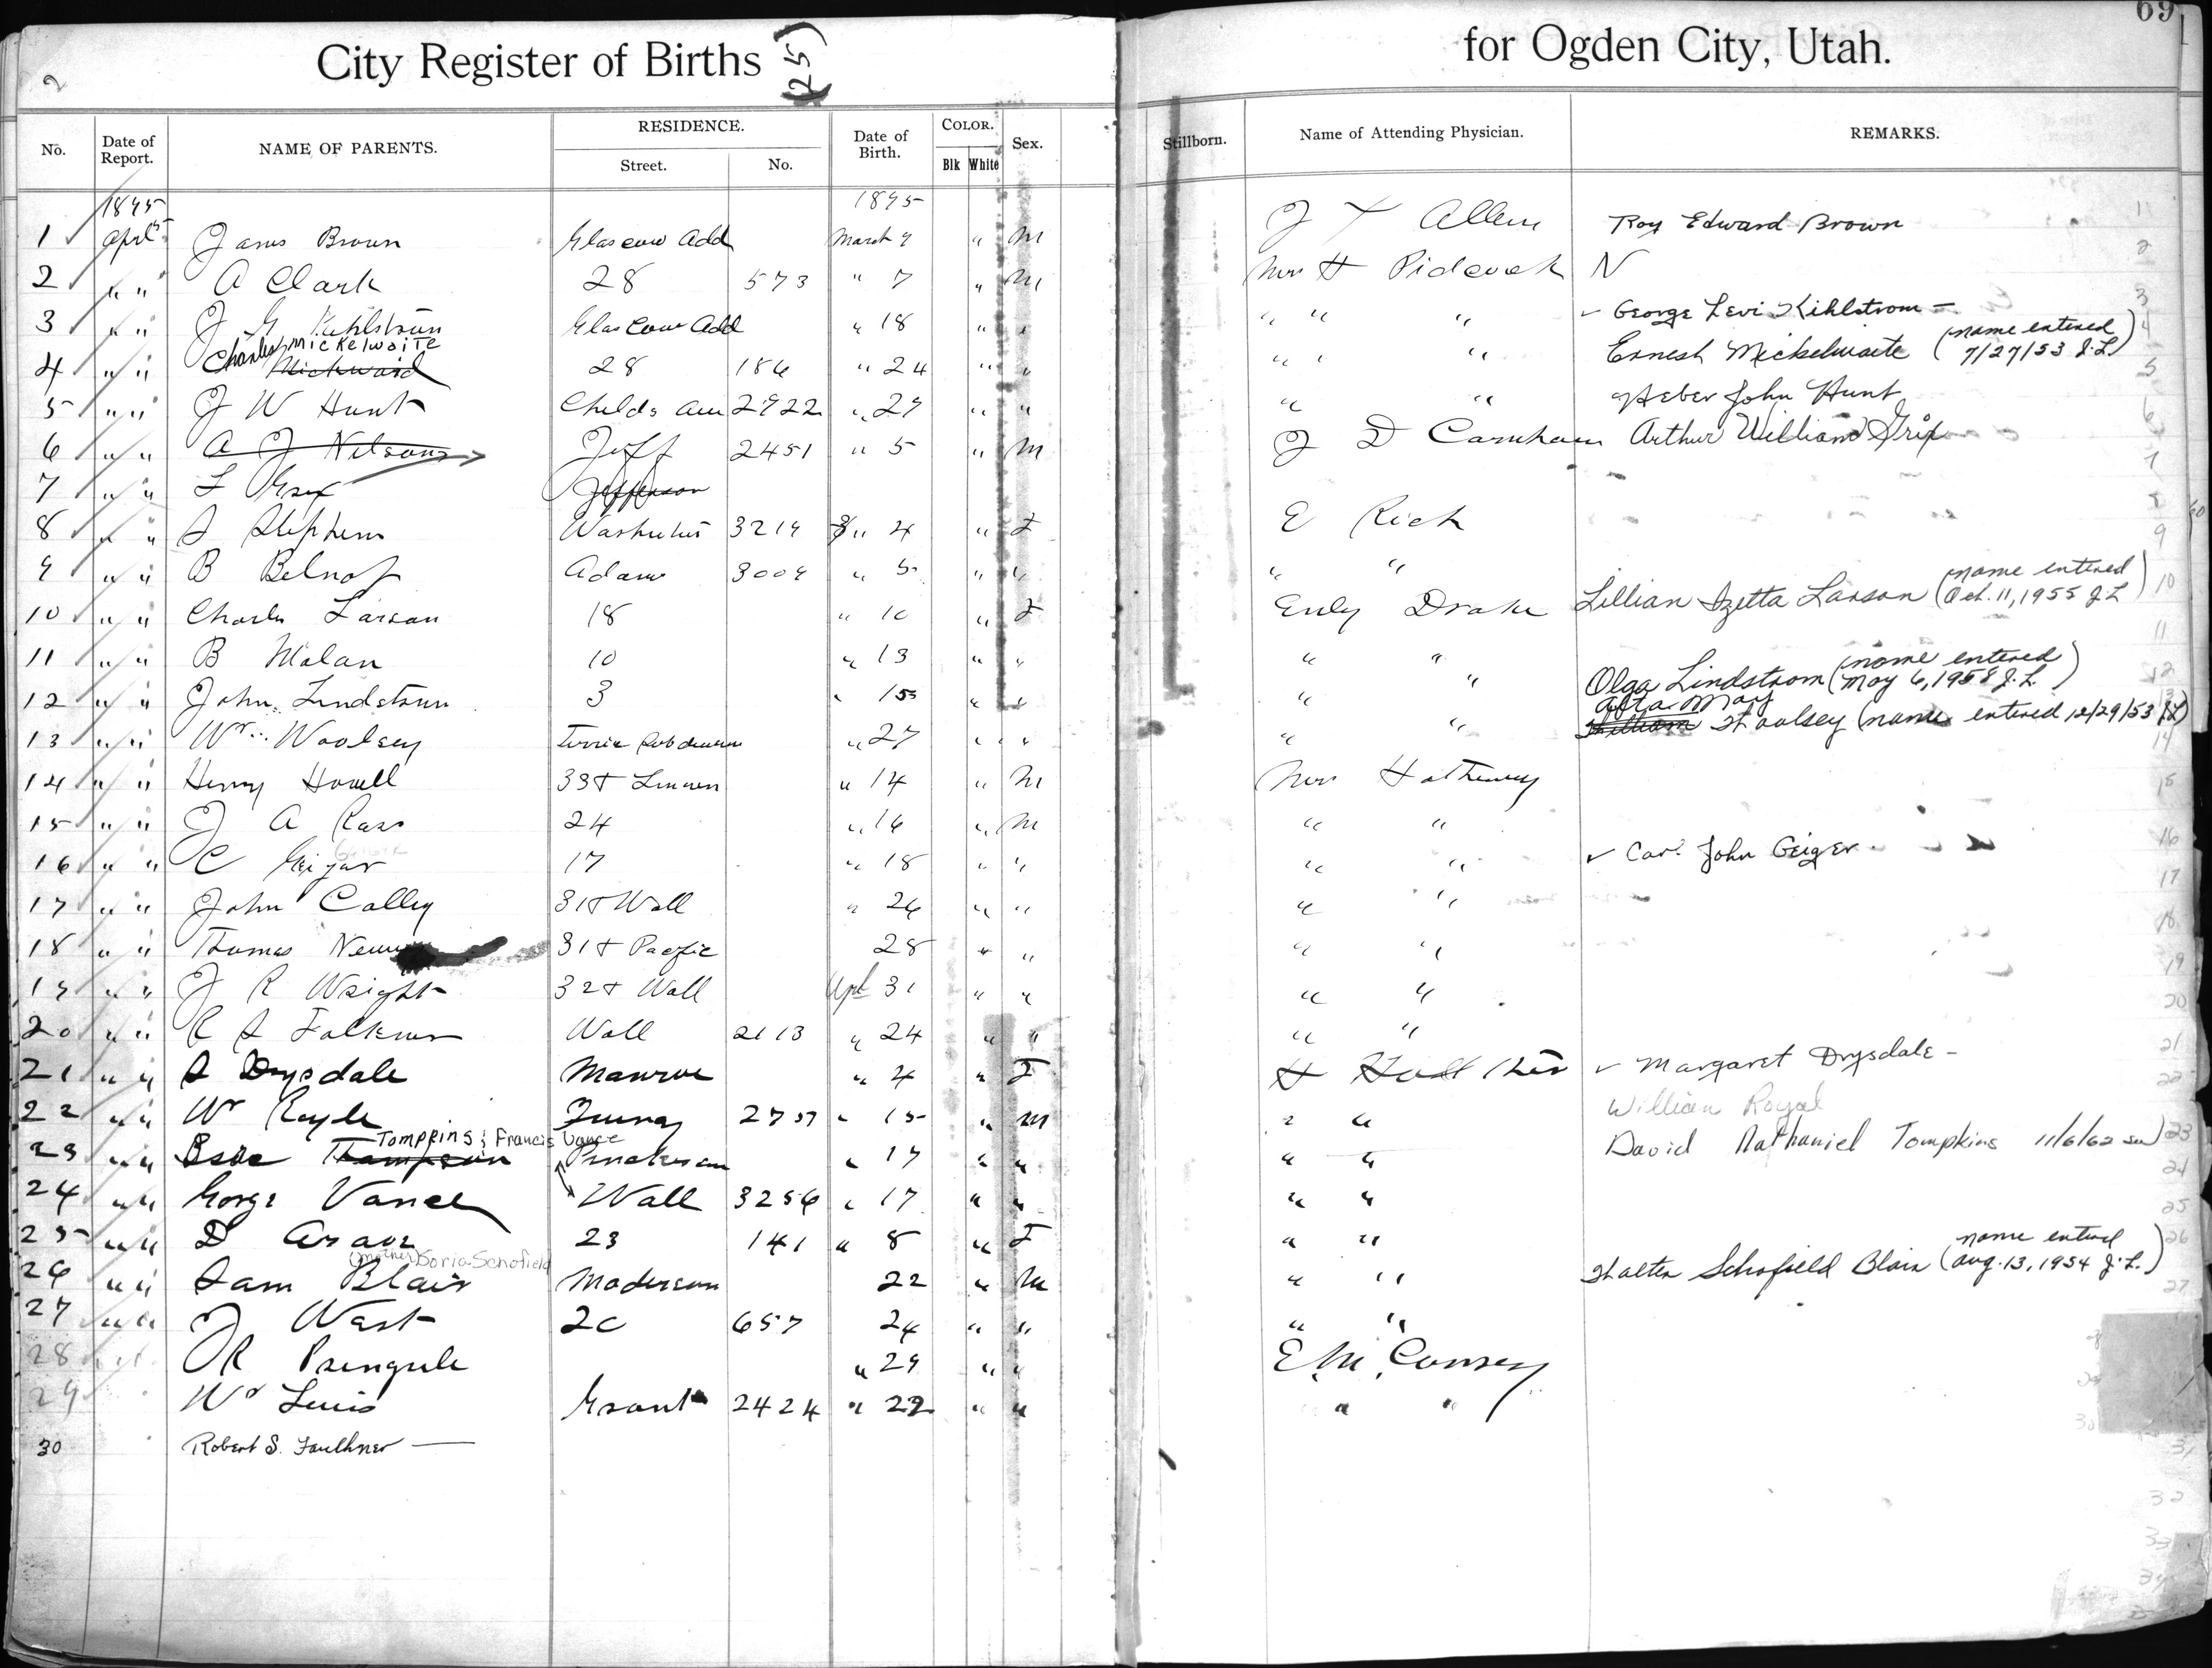 City Register of Births (255)
for Ogden City, Utah.
69
2
No. Date of Report. NAME OF PARENTS. RESIDENCE. Street. No. Date of Birth. COLOR. Blk White Sex.
Stillborn. Name of Attending Physician. REMARKS.
1895 1895
1 Aprl 5 James Brown Glascow Add March 9 " M J X Allen Roy Edward Brown
2 " " A Clark 28 573 " 7 " M Mrs H Pidcock N
3 " " J G Kihlstrom Glascow Add " 18 " " " " " George Levi Kihlstrom
4 " " Charles Mickelwaite Mickwaid 28 186 " 24 " " " " " Ernest Mickelwaite (name entered 7/27/53 J.L.)
5 " " J W Hunt Childs Ave 2922 " 29 " " " " Heber John Hunt
6 " " A J Nilsons Jeff 2451 " 5 " M J D Carnahan Arthur William Grix
7 " " L Grix Jefferson
8 " " S Stephens Washington 3219 " 4 " F E Rich
9 " " B Belnap Adams 3009 " 5 " " " "
10 " " Charles Larson 18 " 10 " F Emly Drake Lillian Izetta Larson (name entered Oct. 11, 1955 J L)
11 " " B Malan 10 " 13 " " " "
12 " " John Lindstrom 3 " 15 " " " " Olga Lindstrom (name entered May 6, 1958 J.L.)
13 " " Wm Woolsey Terrie Subdivision " 27 " " " " Alta May William Woolsey (name entered 12/29/53 JL)
14 " " Henry Howell 33 & Lincoln " 14 " M Mrs Hathaway
15 " " J A Rass 24 " 16 " M " "
16 " " C Geigar 17 " 18 " " " " Carl John Geiger
17 " " John Colley 31 & Wall " 26 " " " "
18 " " Thomas 31 & Pacific 28 " " " "
19 " " J R Wright 32 & Wall Aprl 31 " " " "
20 " " R S Folkner Wall 2113 " 24 " " " "
21 " " S Drysdale Monroe " 4 " F H Margaret Drysdale
22 " " W Royle 2757 " 15 " M " " William Royal
23 " " Tompkins; Francis Vance Thompson " 17 " " " " David Nathaniel Tompkins 11/6/62
24 " " George Vance Wall 3256 " 17 " " " "
25 " " D Arave 23 141 " 8 " F " "
26 " " Sam Blair (mother) Soria Schofield Maderson 22 " M " " Walter Schofield Blair (name entered Aug. 13, 1954 J.L.)
27 " " J West 20 657 24 " " " "
28 " " J R Pringule " 29 " " E. M. Conroy
29 Wm Lewis Grant 2424 " 22 " " " "
30 Robert S. Faulkner